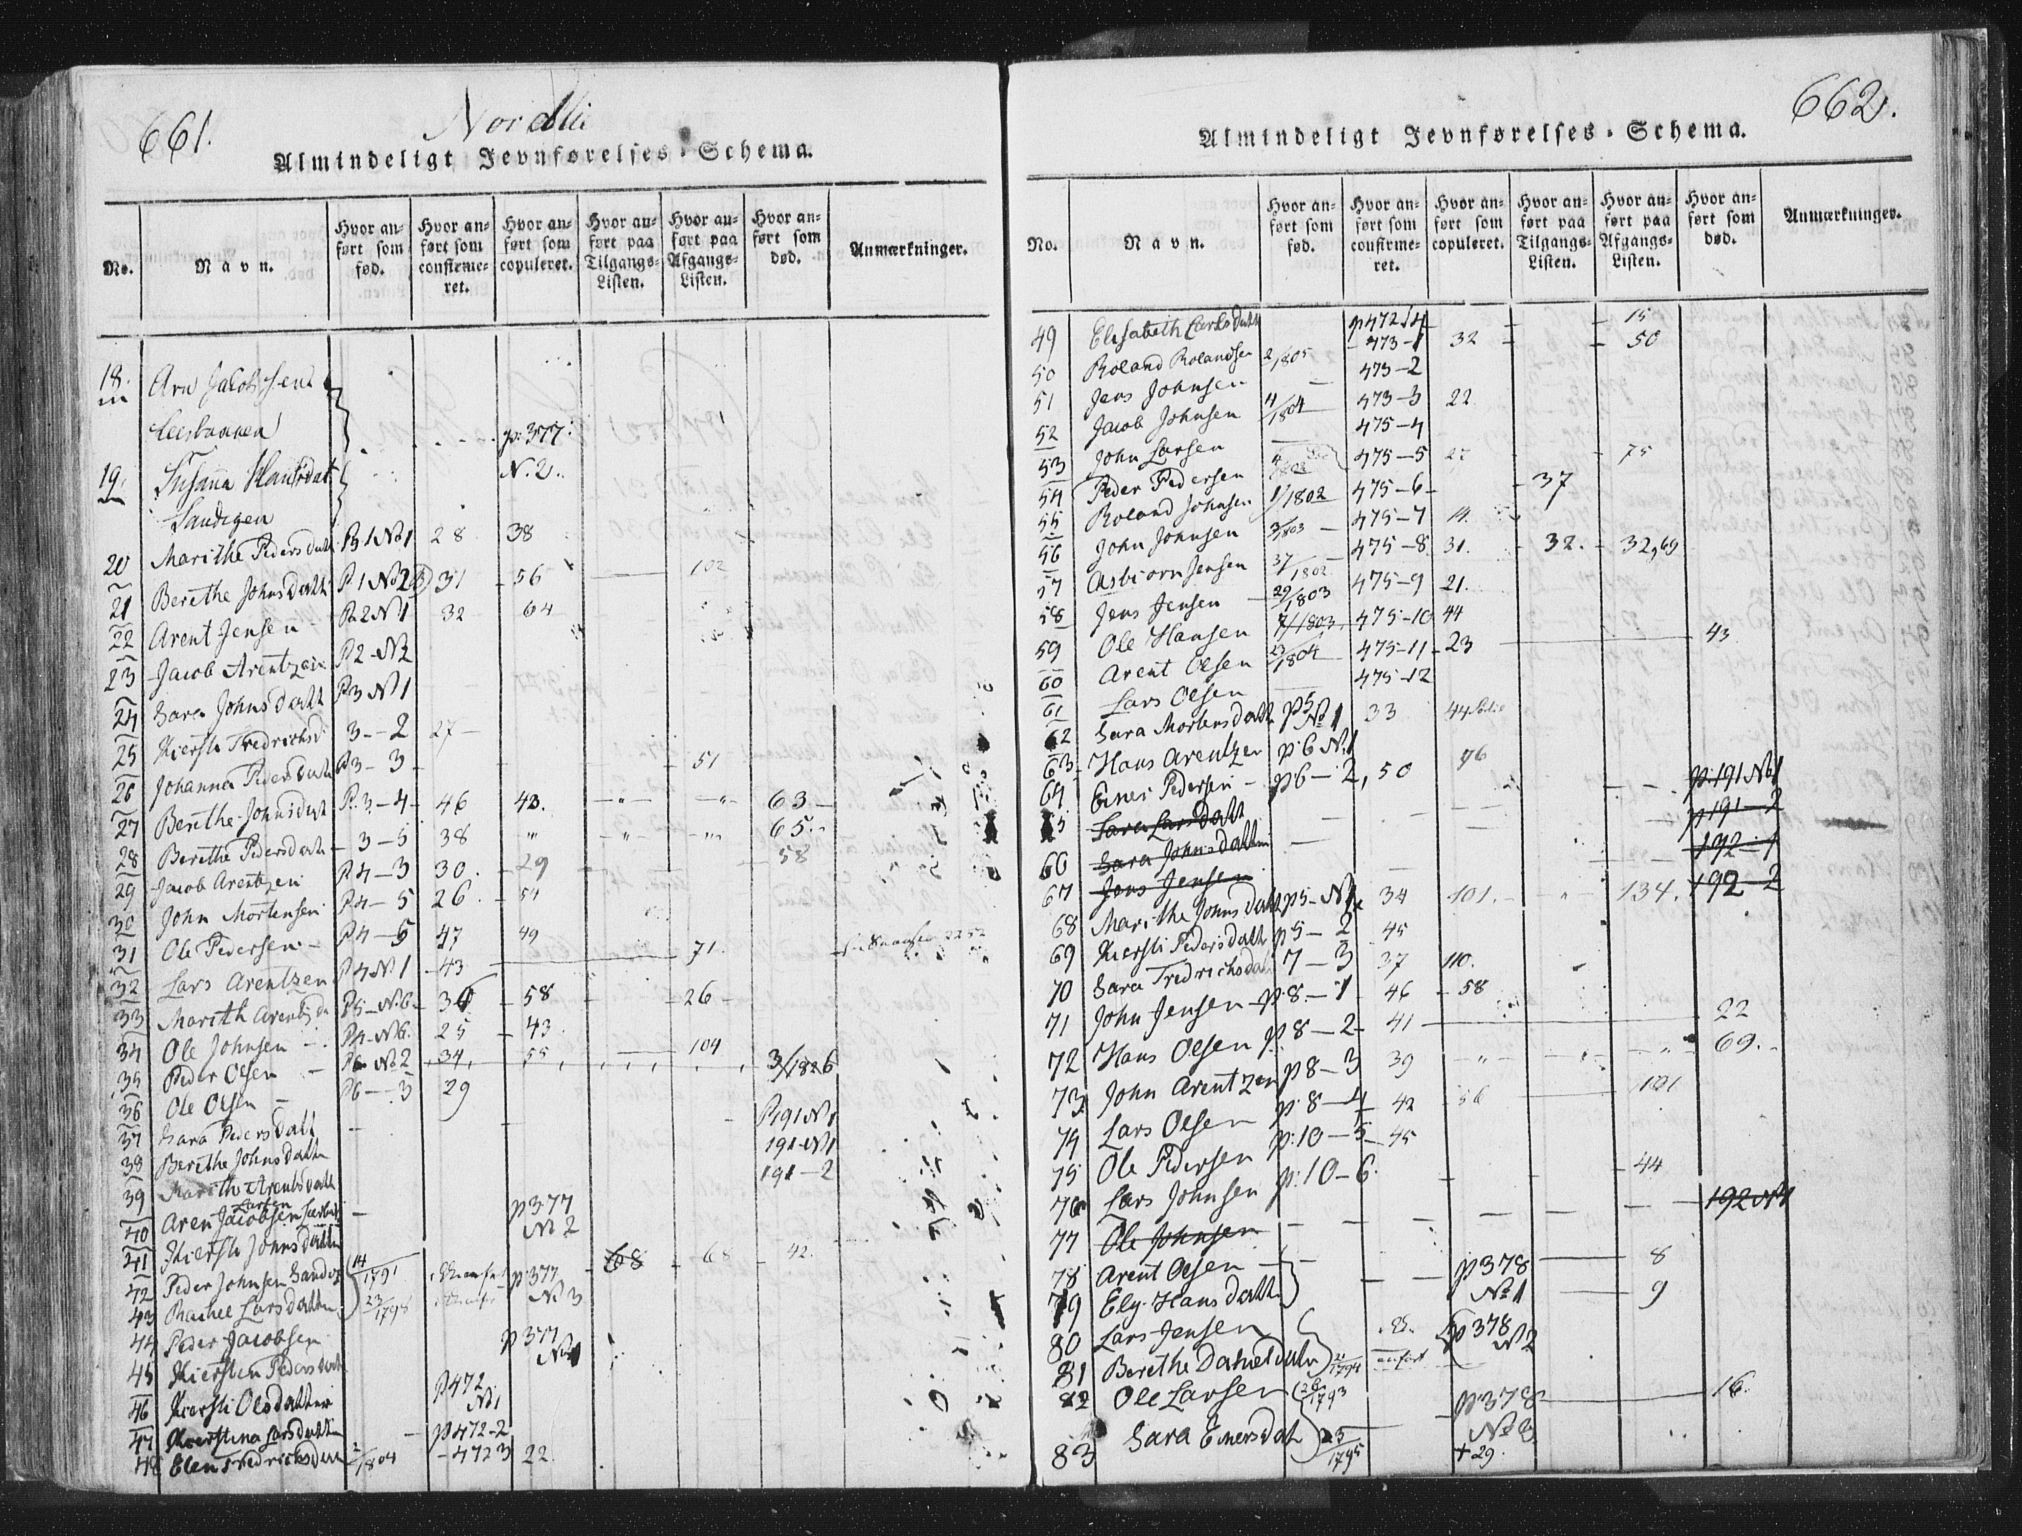 661.
Nordlie
Almindeligt Jevnførelses-Schema.
No. Navn. Hvor anført som fød. Hvor anført som confirmeret. Hvor anført som copuleret. Hvor anført paa Tilgangs-Listen. Hvor anført paa Afgangs-Listen. Hvor anført som død. Anmærkninger.
18. Arn Jacobsen
p: 377.
19. Susanna Hansdat N. 2.
20 Marithe Pedersdatt P. 1 No 1 28 38
21 Berithe Johnsdatt P. 1 No 2 31 56 102
22 Arent Jensen P. 2 N 1 32 64
23 Jacob Arentzen P. 2 - N 2
24 Sara Johnsdatt P. 3 N 1
25 Kiersti Fredrichsd 3 - 2 27
26 Johanna Pedersdatt P. 3 - 3 51
27 Berithe Johnsdatt P. 3 - 4 46 43. 63
28 Berithe Pedersdatt 3 - 5 38 65
29 Jacob Arentzen P 4 - 3 30. 29 58
30 John Mortensen P 4 - 5 26. 54
31 Ole Pedersen P 4 - 5 47 49 71.
32 Lars Arentzen P 4 N 1 43
33 Marith Arentzda P 5 - N 6 36 58 26
34 Ole Johnsen P 4 - N 6. 25 43
35 Peder Olsen P 6 No 2 34 55 104 3/1826
36 Ole Olsen P 6 - 3 29
37 Sara Pedersdatt P. 191 N 1
38 Berithe Johnsdatte 191 - N 1
39 Marith Arentsdatte 191 - 2
40 Aren Jacobsen p 377
41 Kiersti Johnsdatter No 2
42 Peder Johnsen 14/1791 p: 377 68 68 42.
43 Rachel Larsdatter 23/1798 No 3
44 Peder Jacobsen p 377
45 Kiersten Pedersdatt
46 Kiersti Olsdatter P 472 No 1
47 Kierstina Larsdatter p 472-2
48 Elen Fredrichsdatt 2/1804 472 3 22
662.
Almindeligt Jevnførelses-Schema.
No. Navn. Hvor anført som fød. Hvor anført som confirmeret. Hvor anført som copuleret. Hvor anført paa Tilgangs-Listen. Hvor anført paa Afgangs-Listen. Hvor anført som død. Anmærkninger.
49 Elisabeth Larsdatt p 472 4 15
50 Roland Rolandsen 2/1805 473-1 32 50
51 Jens Johnsen 473-2
52 Jacob Johnsen 4/1804 473-3 22
53 John Larsen 475-4
54 Peder Pedersen 475-5 27 75
55 Roland Johnsen 1/1802 475-6 37
56 John Johnsen 3/1803 475-7 14.
57 Asbiorn Jensen 37/1802 475-8 31. 32. 32, 69
58 Jens Jensen 29/1803 475-9 21.
59 Ole Hansen 7/1803 475-10 44
60 Arent Olsen 23/1804 475-11 23 43
61 Lars Olsen 475-12
62 Sara Mortensdatt p 5 No 1 33 44
63 Hans Arentzen p: 6 No 1
64 Einer Pedersen p 6 - 2, 50 76
65 Sara Larsdatt p: 191 No 1
66 Sara Johnsdatter p 191-2
67 Jens Jensen 192-1
68 Marithe Johnsdatt p 5 - N 1 34 101. 134. 192-2
69 Kiersti Pedersdatt p 5 - 2 45
70 Sara Fredrichsdatt 7 - 3 37 110.
71 John Jensen p: 8 - 1 46 58
72 Hans Olsen p. 8 - 2 41 22
73 John Arentzen p 8 - 3 39 69.
74 Lars Olsen p. 8 - 4 42 56 101
75 Ole Pedersen p: 10 - 5 45
76 Lars Johnsen p: 10 - 6 44
77 Ole Johnsen 192 N 1
78 Arent Olsen p 378 8
79 Ely Hansdatte No 1 9
80 Lars Jensen p 378
81 Berithe Danielsdatt 21/1794 anført N 2
82 Ole Larsen 26/1793 p 378 16.
83 Sara Einersdat 23/1795 No 3
+ 29.